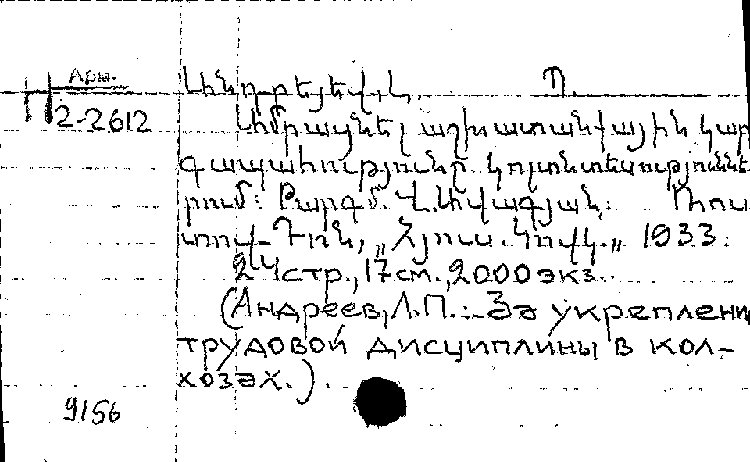 Арм.
II
2-2612
Անդրեյեվ, Լ. Պ.
Ամրապնդել աշխատանքային կար
գապահությունը կոլտնտեսություննե
րում: Բարգմ. Վ. Ավագյան: Ռոս
տով-Դոն, „Հյուս. Կովկ.„ 1933.
24 стр., 17 см., 2000 экз.
(Андреев, Л.П.:-За укреплени
трудовой дисциплины в кол-
хозах.).
9156